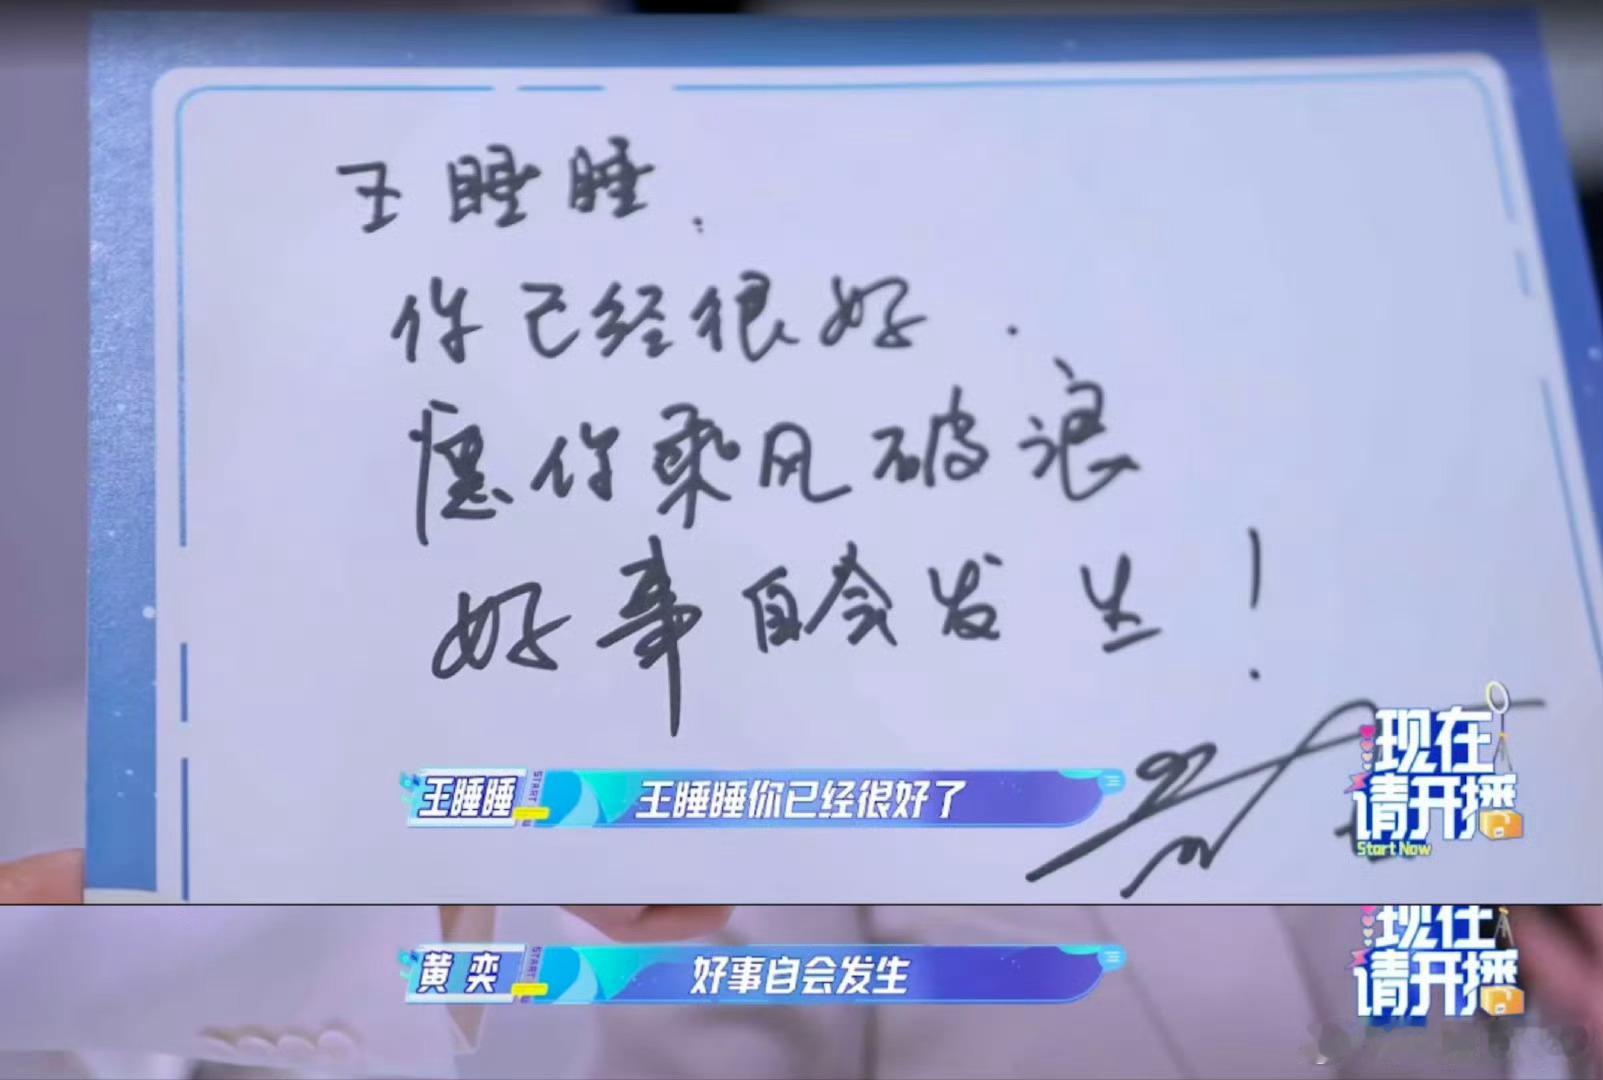 王睡睡:
你已经很好.
愿你乘风破浪
好事自会发生!
王睡睡
START
王睡睡你已经很好了
现在
请开播
Start Now
黄奕
START
好事自会发生
现在
请开播